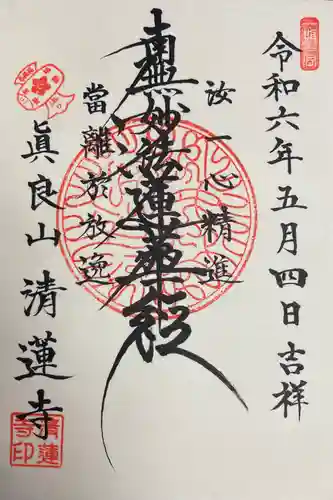 令和六年五月四日吉祥
汝一心精進
南無妙法蓮華経
當離於放逸
眞良山 清蓮寺
清蓮
寺印